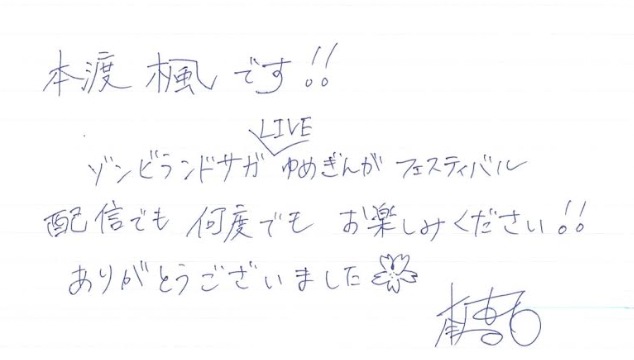 本渡 楓 です!!
ゾンビランドサガ LIVE ゆめぎんが フェスティバル
配信でも 何度でも お楽しみください!!
ありがとうございました